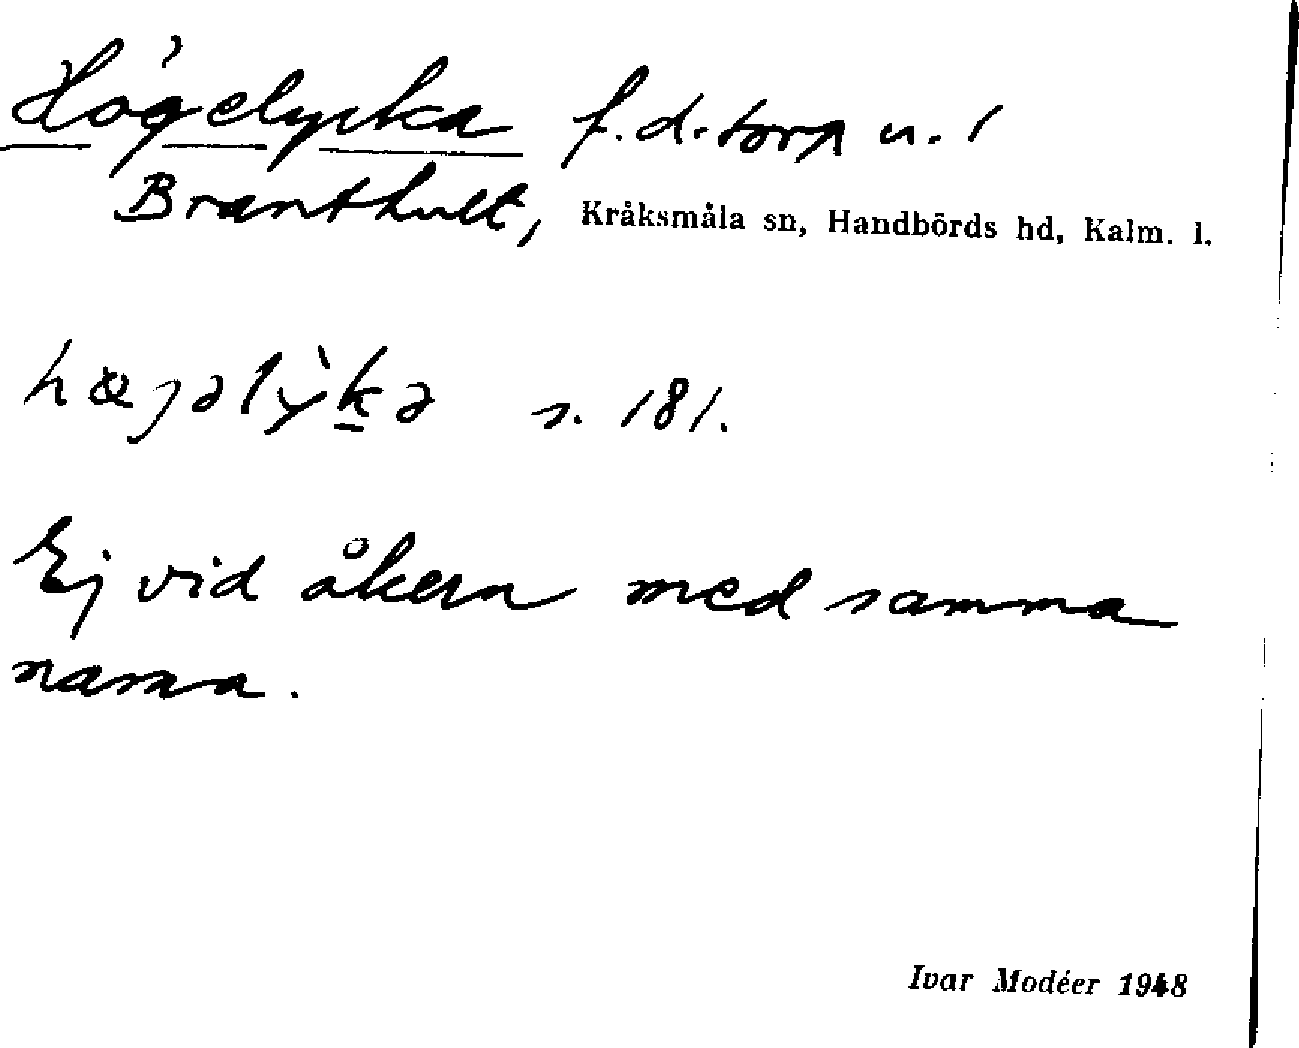 Högelycka f.d. torp u. 1
Branthult, Kråksmåla sn, Handbörds hd, Kalm. l.
s. 181.
Ej vid åkern med samma
namn.
Ivar Modéer 1948